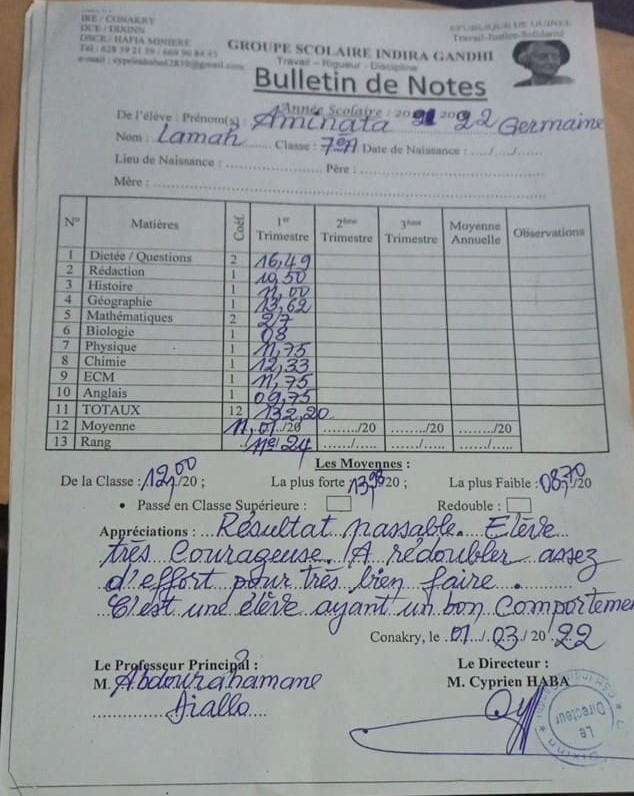 IRE / CONAKRY
DCE / DIXINN
DSCR / HAFIA MINIERE
GROUPE SCOLAIRE INDIRA GANDHI
Travail – Rigueur – Discipline
REPUBLIQUE DE GUINEE
Travail-Justice-Solidarité
Bulletin de Notes
Année Scolaire : 2021 2022
De l'élève : Prénom(s) : Aminata Germaine
Nom : Lamah Classe : 7e A Date de Naissance : ..../..../....
Lieu de Naissance : Père :
Mère :
N° Matières Coéf. 1er Trimestre 2ème Trimestre 3ème Trimestre Moyenne Annuelle Observations
1 Dictée / Questions 2 16,49
2 Rédaction 1 10,50
3 Histoire 1 11,00
4 Géographie 1 13,62
5 Mathématiques 2 27
6 Biologie 1 08
7 Physique 1 11,75
8 Chimie 1 12,33
9 ECM 1 11,75
10 Anglais 1 09,75
11 TOTAUX 12 132,20
12 Moyenne 11,01/20 ......../20 ......../20 ......../20
13 Rang 11e/24 ....../...... ....../...... ....../......
Les Moyennes :
De la Classe : 12,00/20 ; La plus forte 13,98/20 ; La plus Faible : 08,70/20
• Passe en Classe Supérieure : Redouble :
Appréciations : Résultat passable. Elève
très Courageuse. A rédoubler assez
d'effort pour très bien faire.
C'est une élève ayant un bon Comporteme
Conakry, le 01/03/2022
Le Professeur Principal : Le Directeur :
M. Abdourahamane M. Cyprien HABA
Diallo
Le Directeur